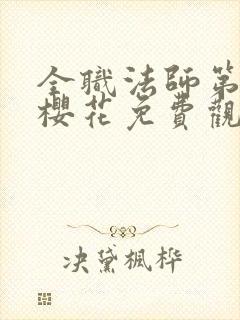 全職法師第
櫻花免費觀
决黛楓桦